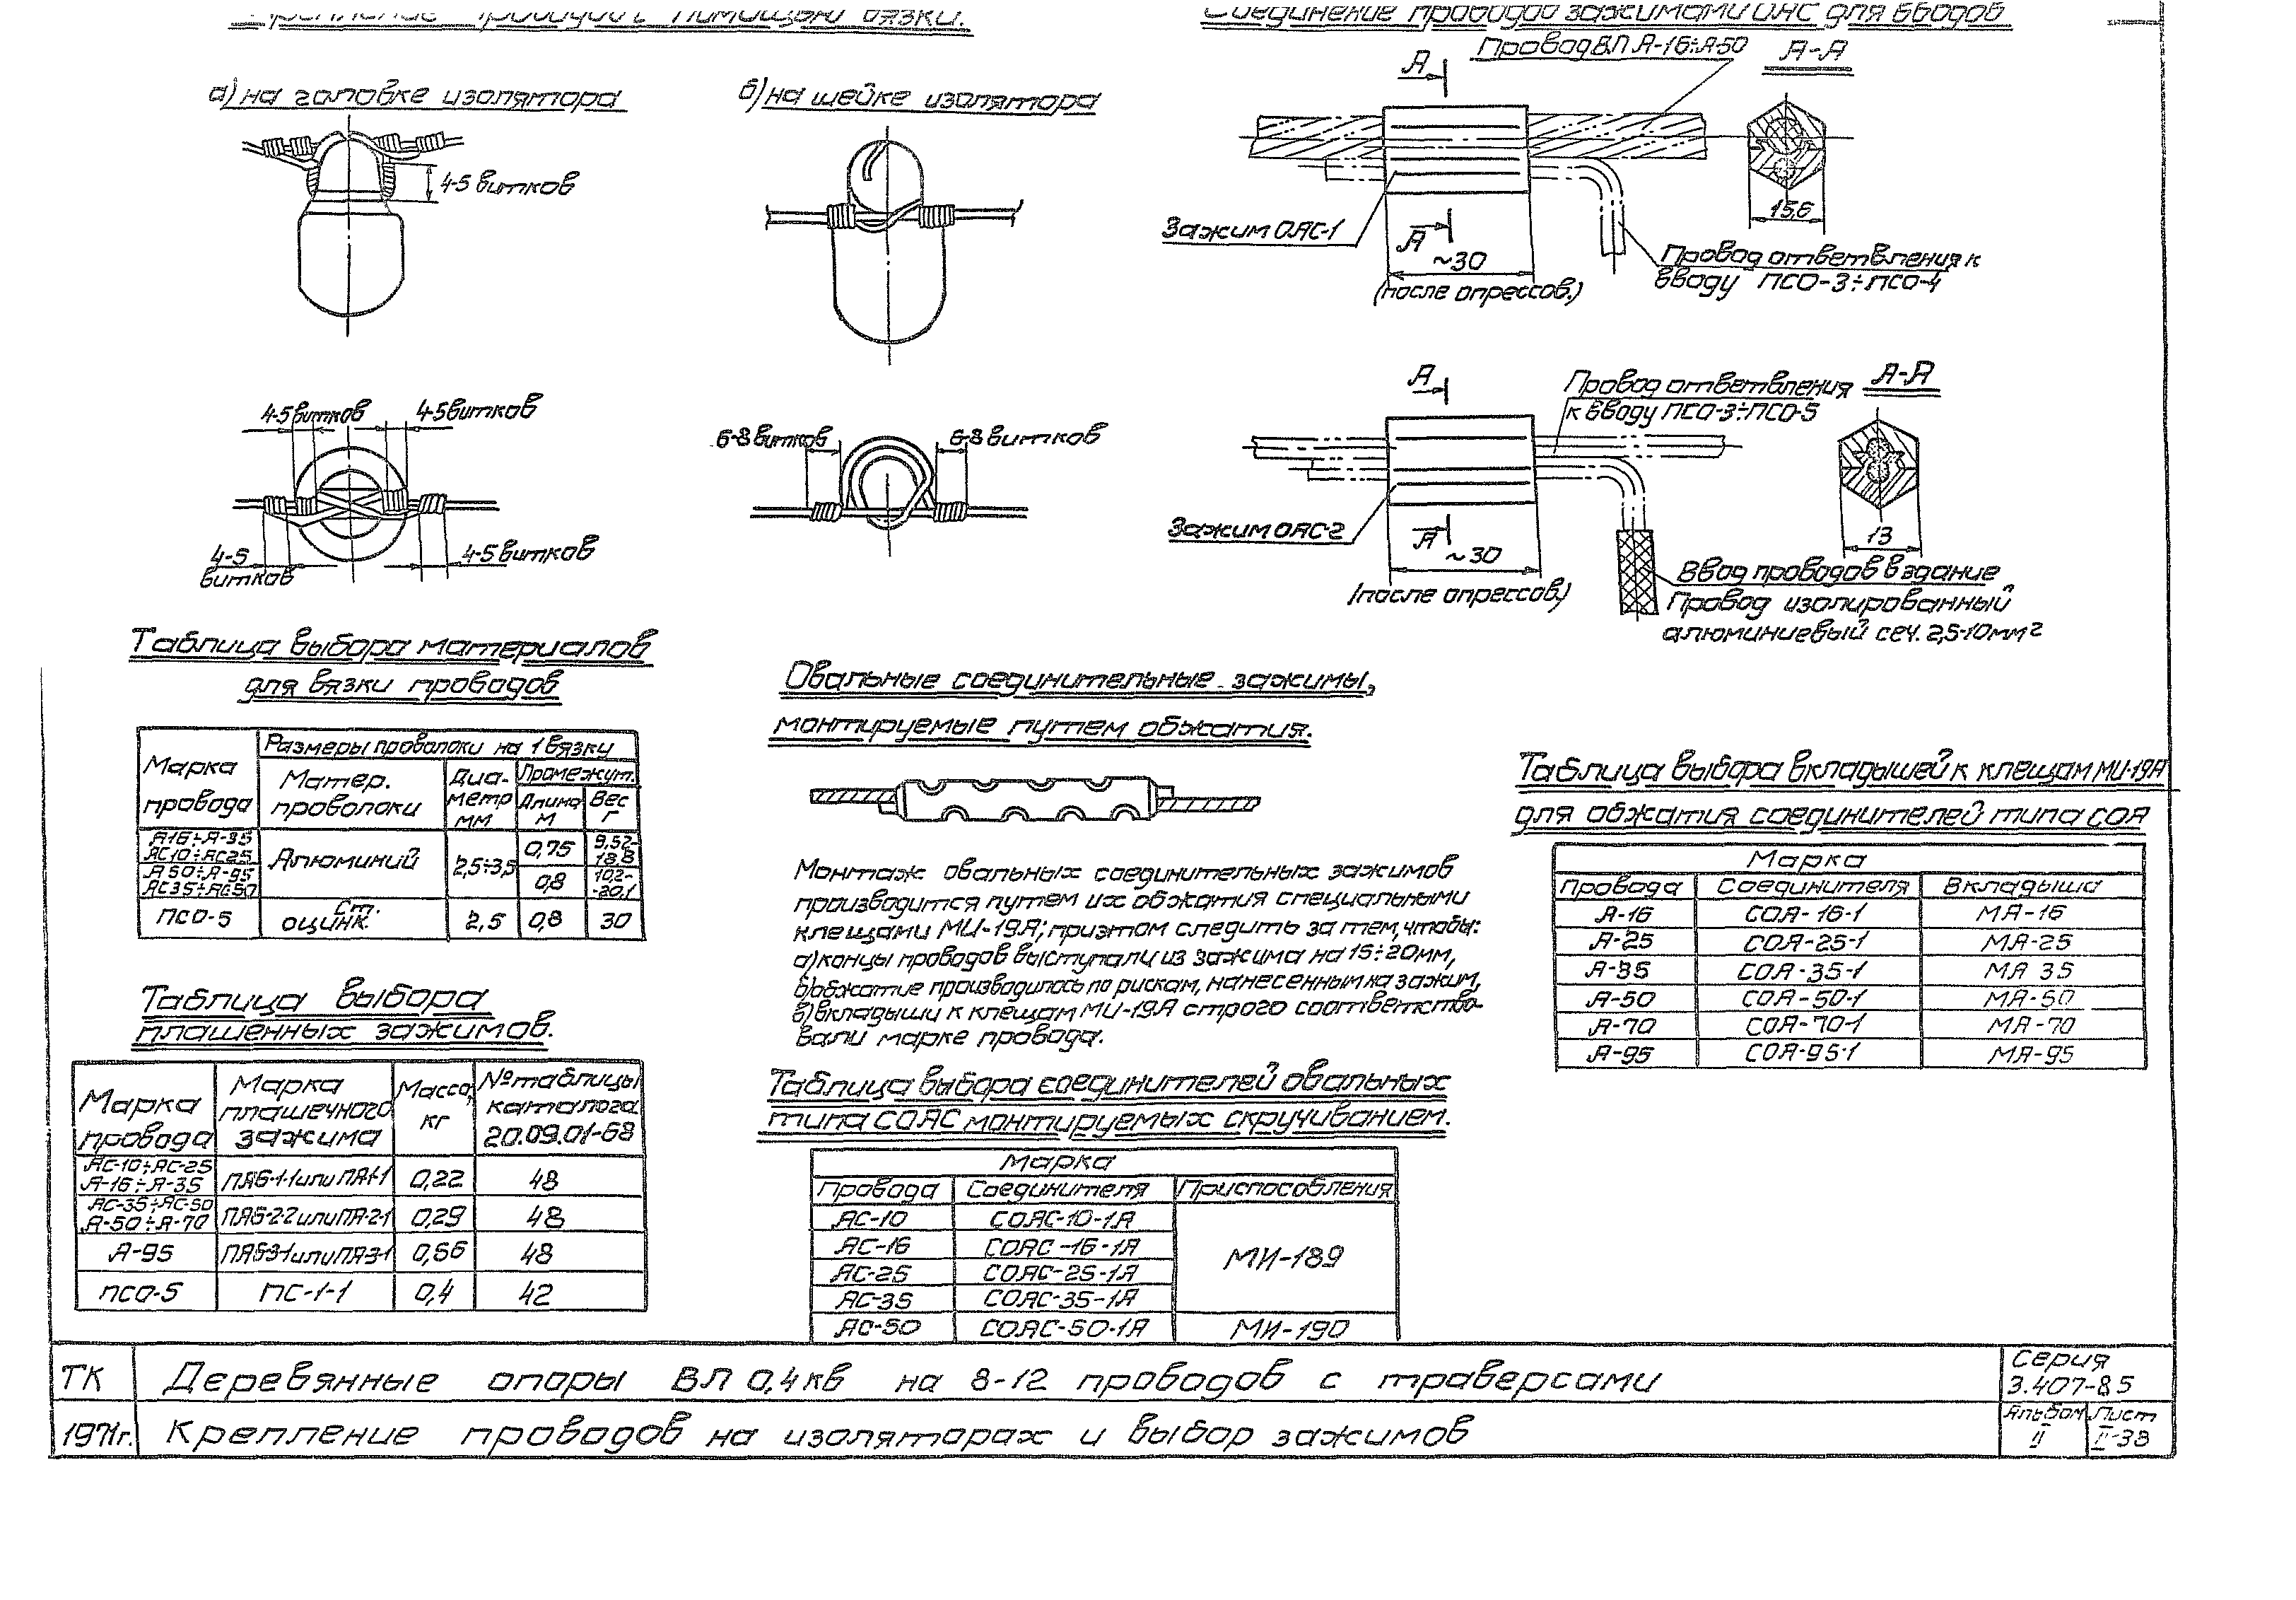 помощью вязки.
а) на головке изолятора
4-5 витков
б) на шейке изолятора
4-5 витков
4-5 витков
4-5
витков
4-5 витков
6-8 витков
6-8 витков
Соединение проводов зажимами ОАС для вводов
Провод ВЛ А-16÷А-50
А-А
А
А
Зажим ОАС-1
~30
(после опрессов.)
15,6
Провод ответвления к
вводу ПСО-3÷ПСО-4
А
А
Провод ответвления
к вводу ПСО-3÷ПСО-5
А-А
Зажим ОАС-2
~30
(после опрессов.)
13
Ввод проводов в здание
Провод изолированный
алюминиевый сеч. 2,5-10мм²
Таблица выбора материалов
для вязки проводов
Марка провода
Размеры проволоки на 1 вязку
Матер. проволоки
Диаметр мм
Промежут.
Длина м
Вес г
А16÷А-35
АС10÷АС25
А50÷А-95
АС35÷АС50
Алюминий
2,5÷3,5
0,75
9,52-18,8
0,8
10,2-20,1
ПСО-5
Ст. оцинк.
2,5
0,8
30
Таблица выбора
плашенных зажимов.
Марка провода
Марка плашечного зажима
Масса, кг
№ таблицы каталога 20.09.01-68
АС-10÷АС-25
А-16÷А-35
ПАБ-1-1 или ПА1-1
0,22
48
АС-35÷АС-50
А-50÷А-70
ПАБ-2-2 или ПА-2-1
0,29
48
А-95
ПАБ3-1 или ПА3-1
0,56
48
ПСО-5
ПС-1-1
0,4
42
Овальные соединительные зажимы,
монтируемые путем обжатия.
Монтаж овальных соединительных зажимов
производится путем их обжатия специальными
клещами МИ-19А; при этом следить за тем, чтобы:
а) концы проводов выступали из зажима на 15÷20мм,
б) обжатие производилось по рискам, нанесенным на зажим,
в) вкладыши к клещам МИ-19А строго соответство-
вали марке провода.
Таблица выбора соединителей овальных
типа СОАС монтируемых скручиванием.
Марка
Провода
Соединителя
Приспособления
АС-10
СОАС-10-1А
АС-16
СОАС-16-1А
МИ-189
АС-25
СОАС-25-1А
АС-35
СОАС-35-1А
АС-50
СОАС-50-1А
МИ-190
Таблица выбора вкладышей к клещам МИ-19А
для обжатия соединителей типа СОА
Марка
Провода
Соединителя
Вкладыша
А-16
СОА-16-1
МА-16
А-25
СОА-25-1
МА-25
А-35
СОА-35-1
МА 35
А-50
СОА-50-1
МА-50
А-70
СОА-70-1
МА-70
А-95
СОА-95-1
МА-95
ТК
Деревянные опоры ВЛ 0,4 кв на 8-12 проводов с траверсами
Серия
3.407-85
1971г.
Крепление проводов на изоляторах и выбор зажимов
Альбом
II
Лист
II-38